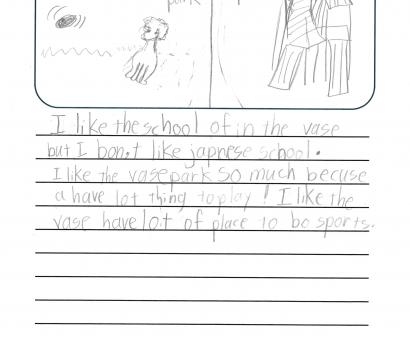 park
I like the school of in the vase
but I bon,t like japnese school.
I like the vasepark so much becuse
a have lot thing to play! I like the
vase have lot of place to bo sports.